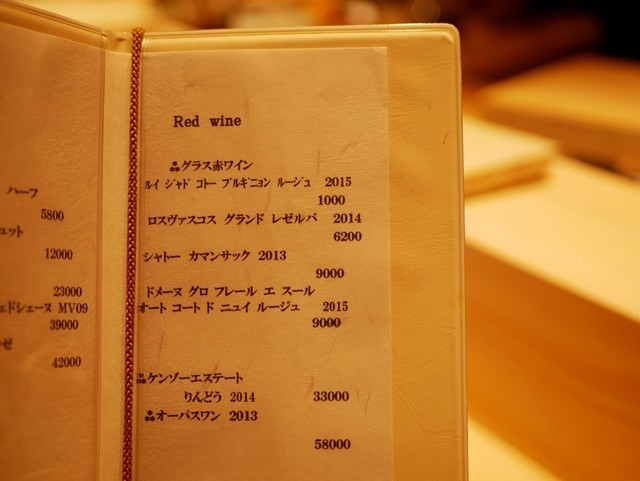 ハーフ
5800
ュット
12000
23000
ェドシェーヌ MV09
39000
ゼ
42000
Red wine
グラス赤ワイン
ルイ ジャド コトー ブルギニョン ルージュ 2015
1000
ロスヴァスコス グランド レゼルバ 2014
6200
シャトー カマンサック 2013
9000
ドメーヌ グロ フレール エ スール
オート コート ド ニュイ ルージュ 2015
9000
ケンゾーエステート
りんどう 2014 33000
オーパスワン 2013
58000